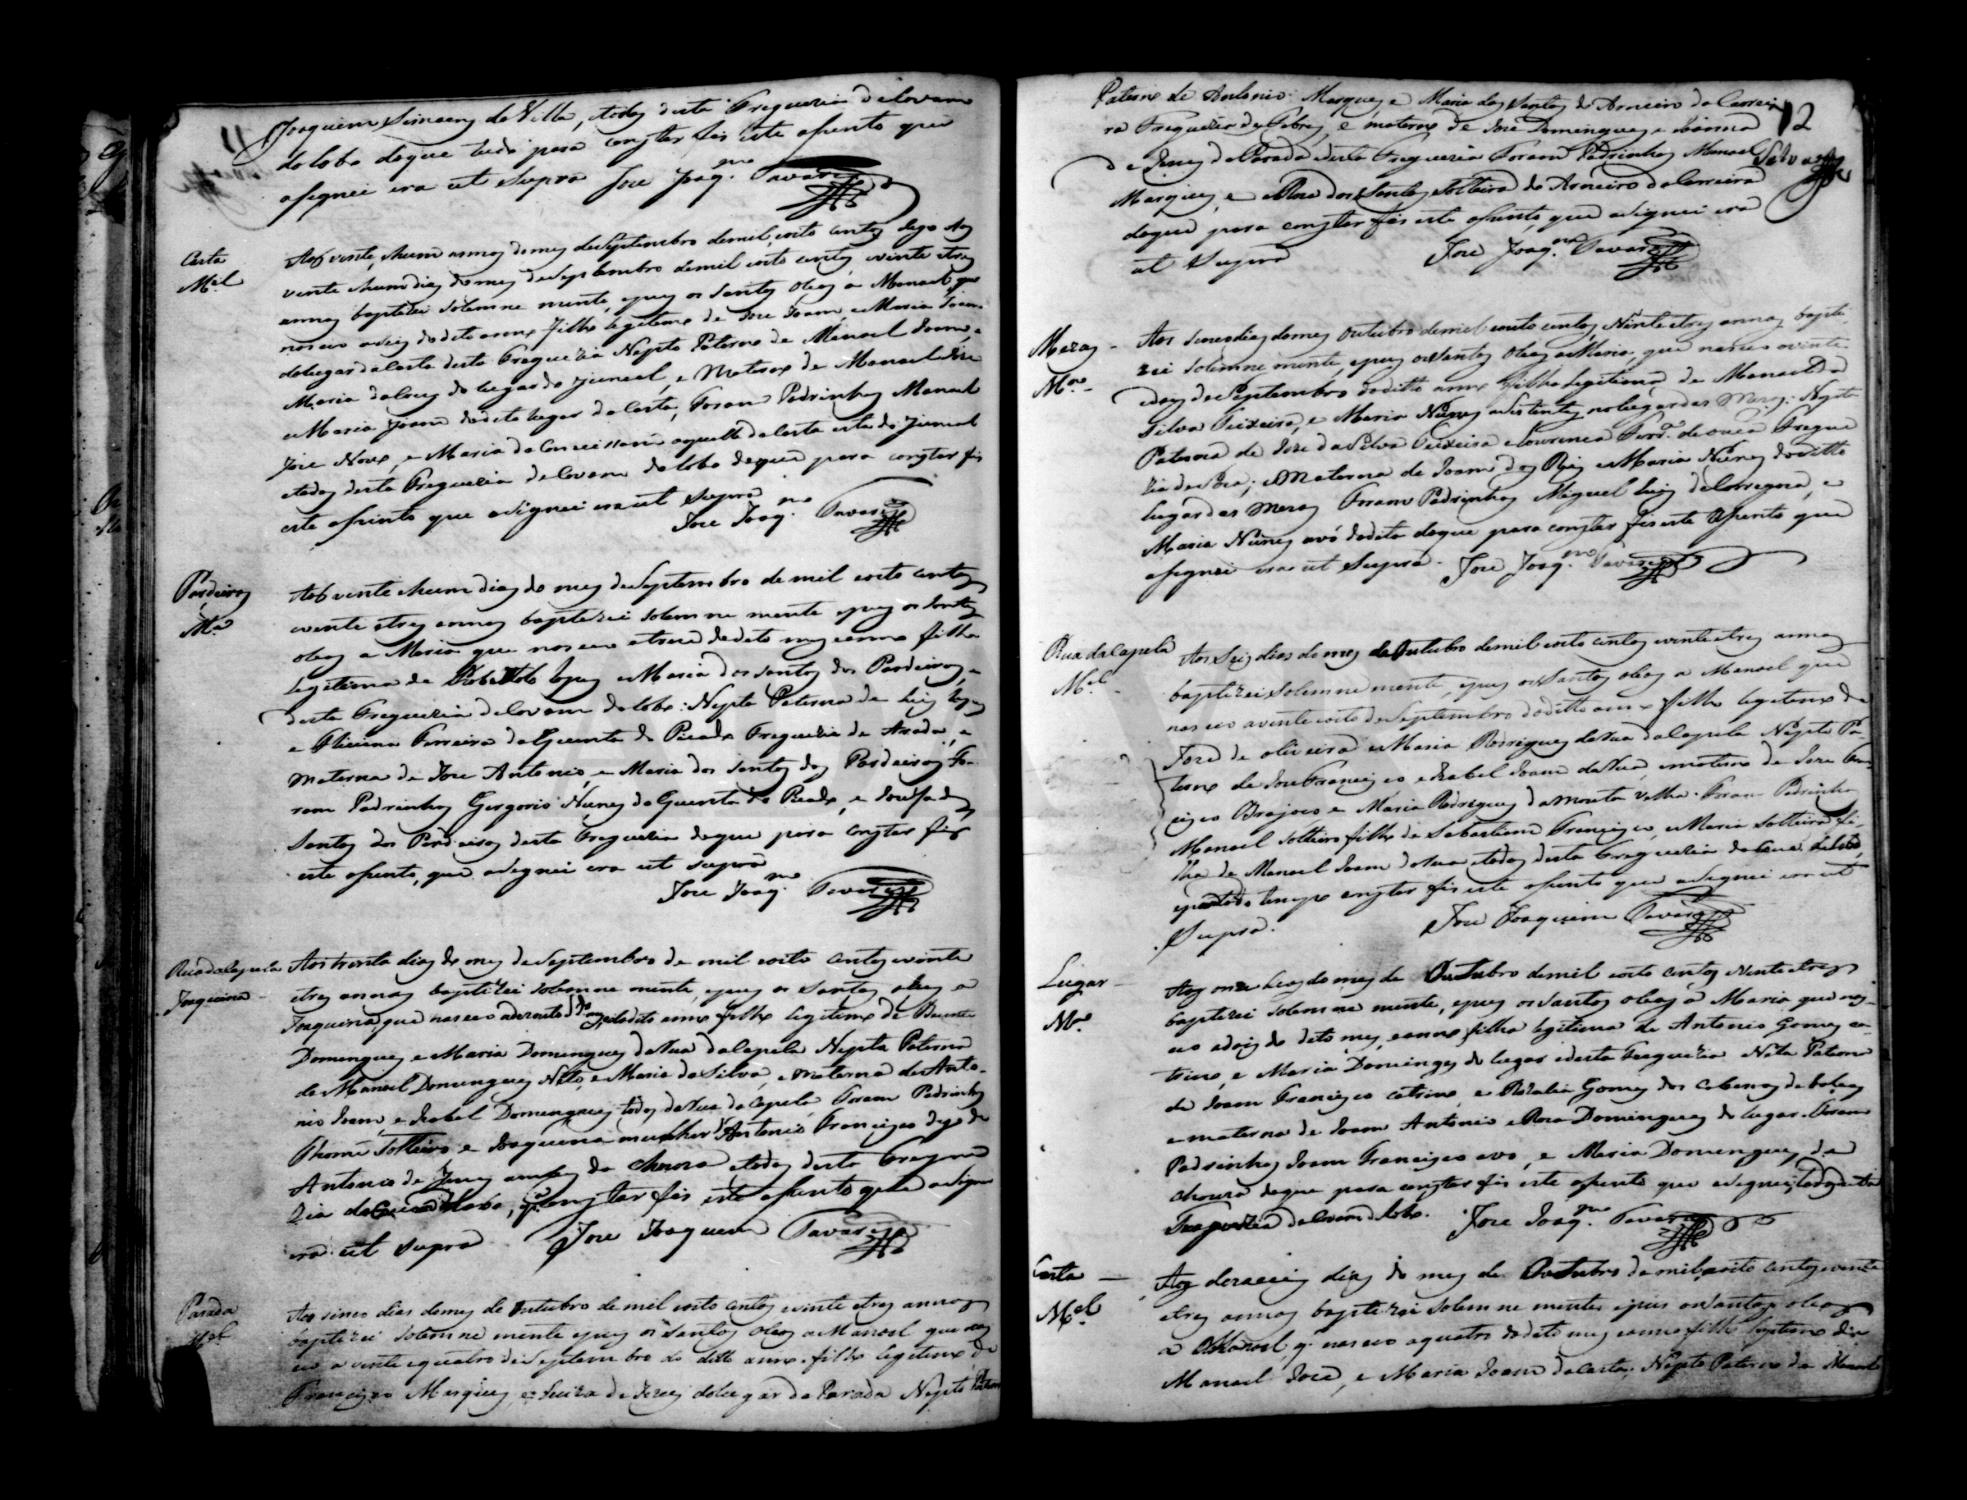 Joaquim Simoens da Villa, todos desta Freguezia de Covam
do lobo de que tudo para constar fis este asento que
asignei era ut supra Joze Joaq.m Tavares
Costa
M.el
Aos vinte hum annos do mes de Septembro de mil, oito centos digo Aos
vente hum dias do mes de Septembro de mil oito centos e vinte etres
annos baptizei solemne mente, e pus os santos oleos a Manoel que
nasceo a seis do dito anno filho legitimo de Joze Joam, e Maria Joam
do lugar da Costa desta Freguezia Nepto Paterno de Manoel Joam, e
Maria da Crus do lugar do Juncal, e Materno de Manoel Joze
e Maria Joam do dito lugar da Costa, Foram Padrinhos Manoel
Joze Novo, e Maria da Conceissam aquelle da Costa esta do Juncal
etodos desta Freguezia de Covam do lobo de que para constar fis
este asento que asignei era ut supra
Joze Joaq.m Tavares
Pardeiros
M.a
Aos vente hum dias do mes de Septembro de mil oito centos
vinte etres annos baptizei solemne mente e pus os santos
oleos a Maria que nasceo a treze do dito mes e anno filha
legitima de Lopes e Maria dos Santos dos Pardeiros,
desta Freguezia de Covam do lobo: Nepta Paterna de Luis Lopes
e Ferreira da Quinta do Picado Freguezia de Arada, e
materna de Joze Antonio, e Maria dos Santos dos Pardeiros Fo-
ram Padrinhos Gergorio Nunes da Quinta do Picado, e Jozefa dos
Santos dos Pardeiros desta Freguezia de que para constar fis
este asento, que asignei era ut supra
Joze Joaq.m Tavares
Rua da Capela
Joaquina
Aos trinta dias do mes de Septembro de mil oito centos e vinte
etres annos baptizei solemne mente, e pus os santos oleos a
Joaquina que nasceo a dezouto do dito anno filha legitima de
Domingues e Maria Domingues da Rua da Capela Nepta Paterna
de Manoel Domingues Neto, e Maria da Silva, e materna de Anto-
nio Joam, e Izabel Domingues todos da Rua da Capela Foram Padrinhos
Thomé Solteiro e Joaquina mulher de Antonio Francisco digo de
Antonio de Jezus ambos da Choura e todos desta Fregue
zia de Covam do lobo, q. constar fis este asento que asignei
era ut supra Joze Joaquim Tavares
Parada
M.el
Aos sinco dias do mes de Outubro de mil oito centos e vinte etres annos
baptizei solemne mente e pus os santos oleos a Manoel que nas
ceo a vinte e quatro de Septembro do dito anno filho legitimo de
Francisco Marques, e Luiza de Jezus do lugar da Parada Nepto Patern
12
Paterno de Antonio Marques e Maria dos Santos do Arneiro da Carrei
ra Freguezia de, e materno de Joze Domingues e Joanna
de Jezus da Parada desta Freguezia Foram Padrinhos Manoel
Marques, e Roza dos Santos Solteira do Arneiro da Carreira
de que para constar fis este asento, que asignei era
ut supra Joze Joaq.m Tavares
Mezas
M.a
Aos sinco dias do mes Outubro de mil outo centos Vinte etres annos bapti
zei solemne mente, e pus os santos oleos a Maria que nasceo a vinte
e dois de Septembro do ditto anno filha legitima de Manoel da
Silva Teixeira, e Maria Nunes asistentes no lugar das Mezas: Nepta
Paterna de Joze da Silva Teixeira e Lourença Fregue
zia de; e Materna de Joam dos Reis e Maria Nunes do ditto
lugar das Mezas Foram Padrinhos Miguel Luis, e
Maria Nunes avó da dita de que para constar fis este asento que
asignei era ut supra. Joze Joaq.m Tavares
Rua da Capela
M.el
Aos seis dias do mes de Outubro de mil oito centos e vinte etres annos
baptizei solemne mente, e pus os santos oleos a Manoel que
nasceo a vinte oito de Septembro do ditto anno filho legitimo de
Joze de oliveira e Maria Rodrigues da Rua da Capela Nepto Pa-
terno de Joze Francisco e Izabel Joam da Rua, e materno de Joze Fran-
cisco e Maria Rodrigues da mouta velha. Foram Padrinhos
Manoel solteiro filho de Sebastiam Francisco, e Maria solteira fi-
lha de Manoel Joam da Rua e todos desta Freguezia
tempo constar fis este asento que asignei era ut
supra. Joze Joaquim Tavares
Lugar
M.a
Aos onze dias do mes de Outubro de mil oito centos Vinte etres
baptizei solemne mente, e pus os santos oleos a Maria que nas-
ceo a dois do dito mes, e anno filha legitima de Antonio Gomes ca-
trino, e Maria Domingues do lugar e desta Freguezia Neta Paterna
de Joam Francisco catrino, e Rozalia Gomes dos
e materna de Joam Antonio e Roza Domingues do lugar. Foram
Padrinhos Joam Francisco avo, e Maria Domingues da
choura de que para constar fis este asento que asignei, todos desta
Freguezia de Covam do lobo. Joze Joaq.m Tavares
Costa
M.el
Aos dezaseis dias do mes de Outubro de mil, oito centos e vinte
etres annos baptizei solemne mente e pus os santos oleos
a Manoel q. nasceo a quatro do dito mes e anno filho legitimo de
Manoel Joze, e Maria Joam da Costa; Nepto Paterno de Manoel